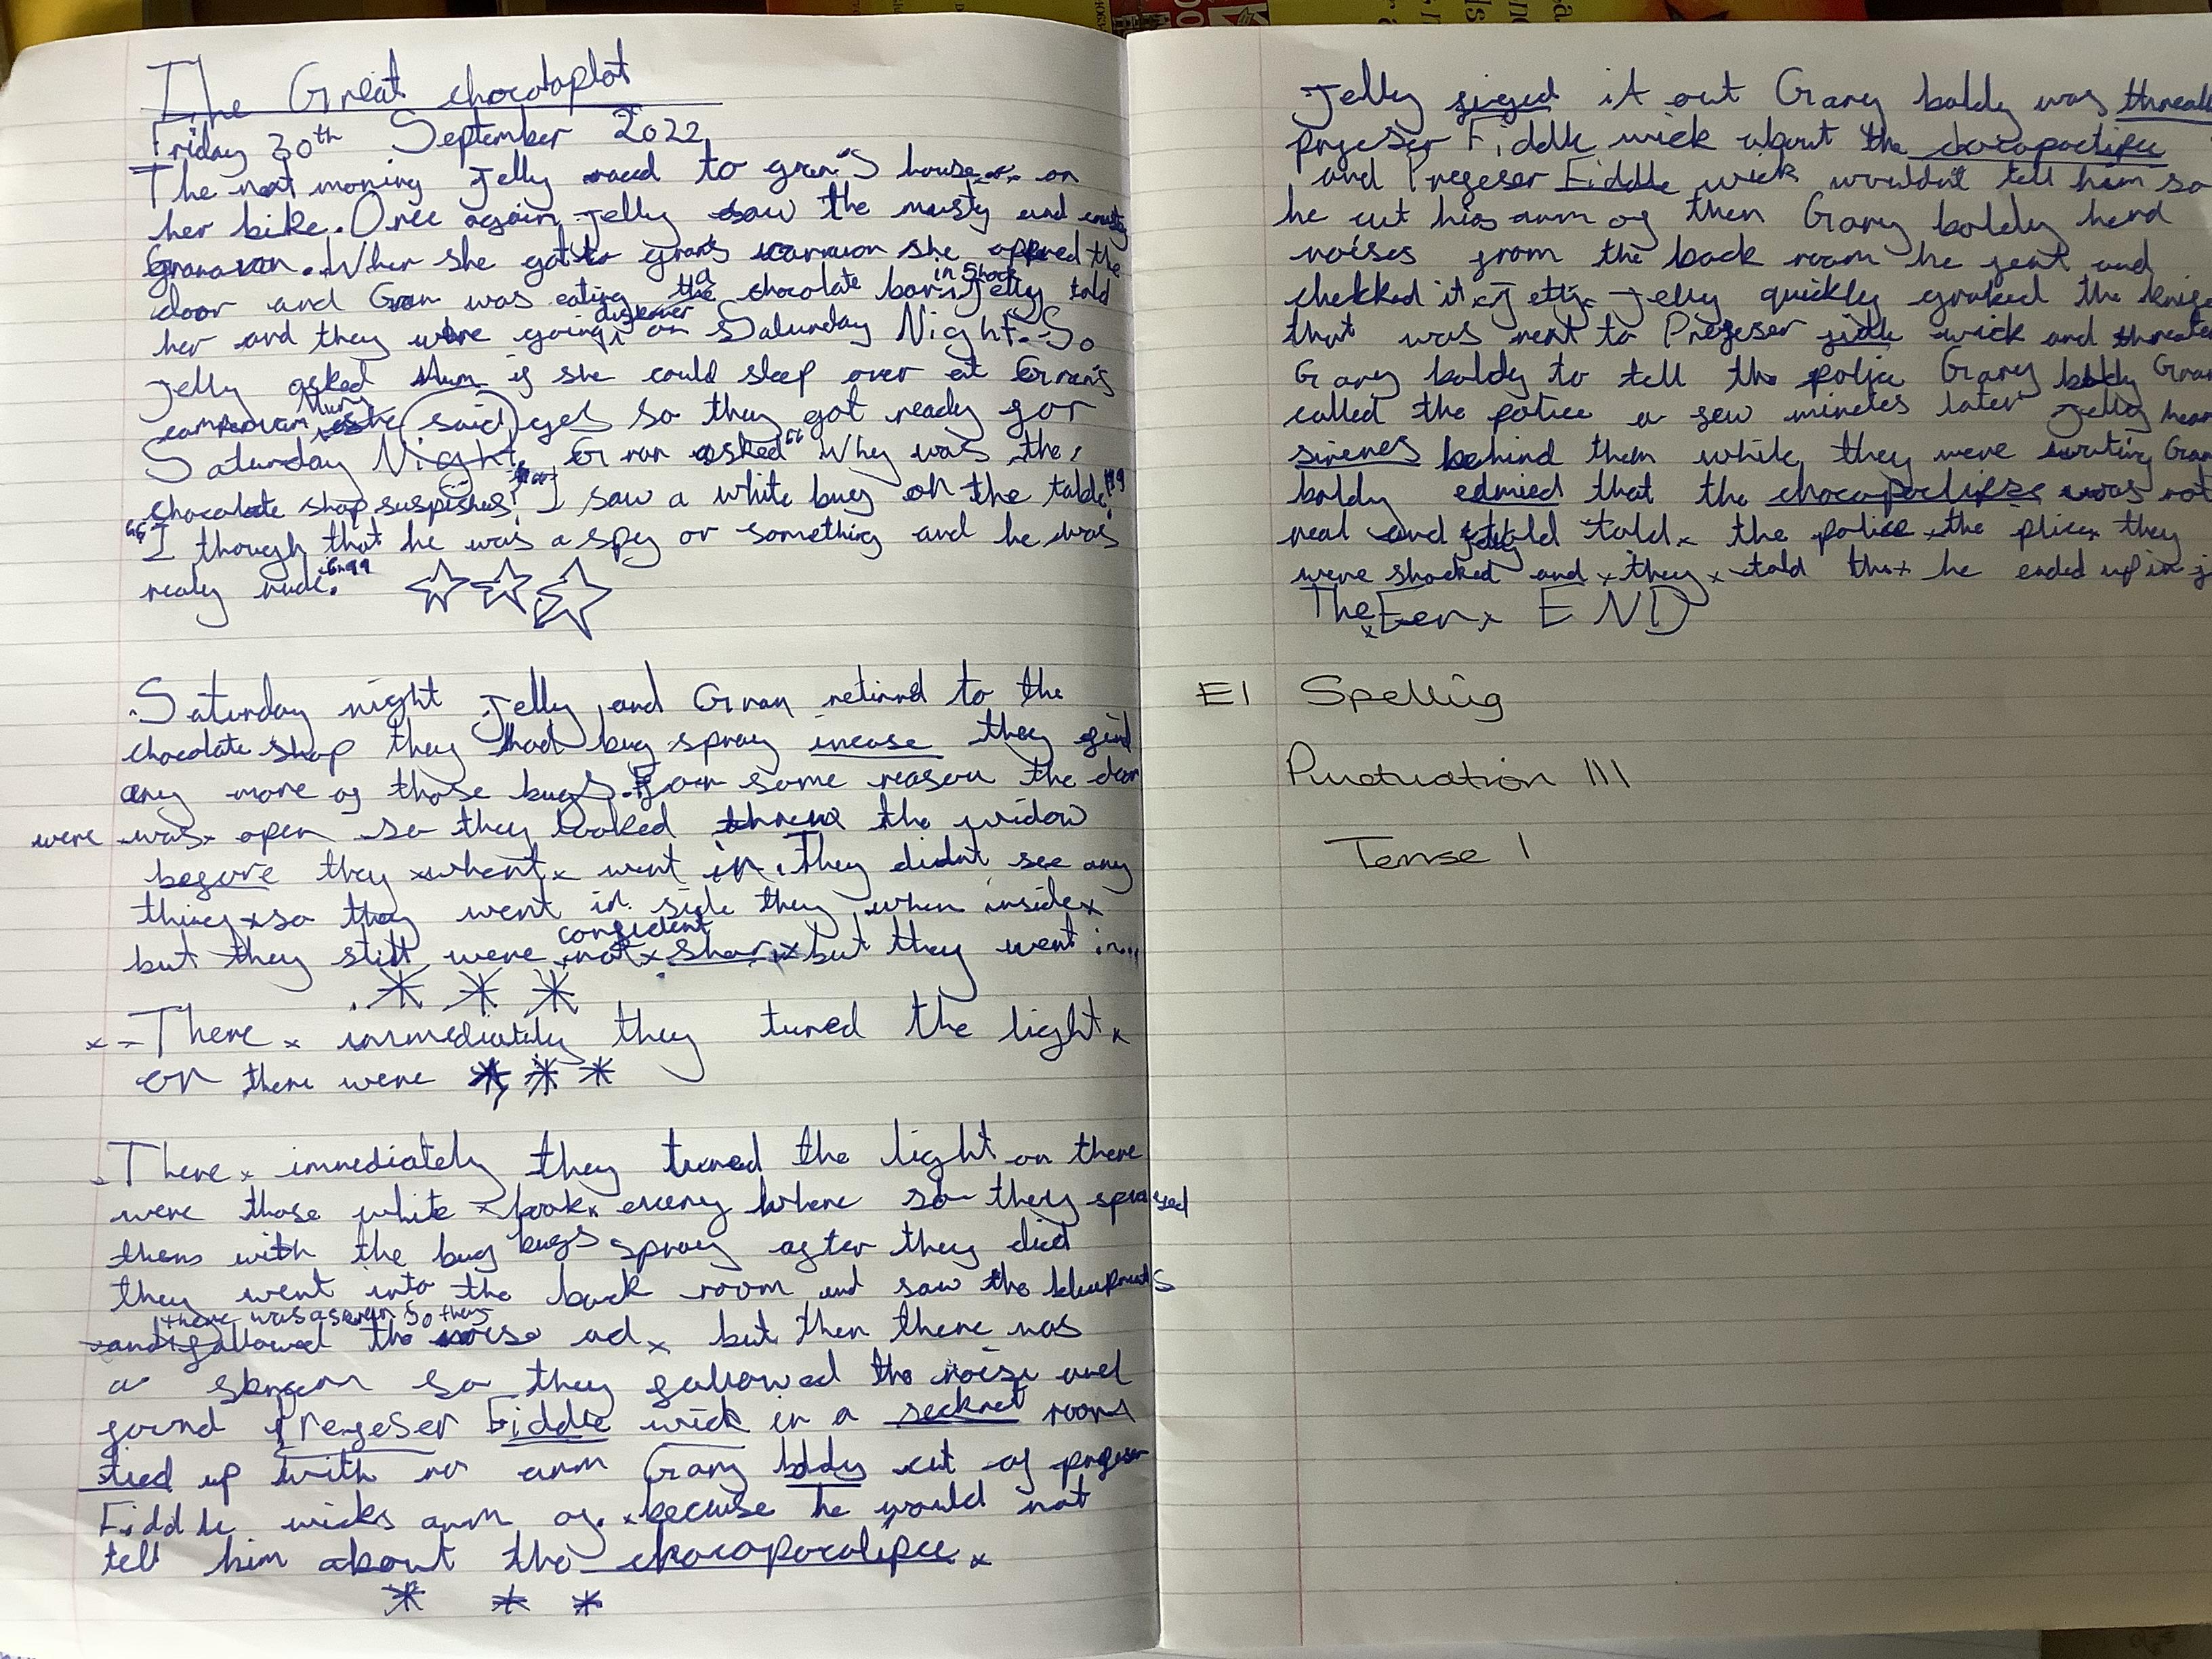 The Great chocoplot
Friday 30th September 2022
The next morning Jelly raced to gran's house on
her bike. Once again Jelly saw the musty and
Granavan. When she got to gran's she opened the
door and Gran was eating a chocolate bar in shock Jelly told
her and they were going discover on Saturday Night. So
Jelly asked Mum if she could sleep over at Gran's
Mum said yes so they got ready for
Saturday Night. Gran asked "Why was the
chocolate shop suspishus? I saw a white bug on the table!"
"I though that he was a spy or something and he was
realy rude."
Saturday night Jelly and Gran retirnd to the
chocolate shop they had bug spray incase they find
any more of those bugs. For some reason the door
were was open so they looked threw the widow
before they x whent x went in. They didnt see any
thing x so they went in side they when inside x
but they still were x not x confident shor x but they went in...
x - There x immediately they turned the light x
on there were
There x immediately they turned the light on there
were those white x book x everey where so they sprayed
them with the bug bugs spray after they died
they went into the back room and saw the blueprints
there was a so they
and followed the noise ad x but then there was
a so they followed the noise and
found Prefeser Fiddle wick in a secknet room
tied up with no arm Gary boldy cut of profeser
Fiddle wicks arm of. x because he would not
tell him about the chocopocalipce x
Jelly figed it out Gary boldy was
profeser Fiddle wick about the
and Prefeser Fiddle wick wouldn't tell him so
he cut his arm of then Gary boldy herd
noises from the back room he went and
chekked it x Jelly quickly grabed the knife
that was next to Prefeser fidle wick and
Gary boldy to tell the police Gary boldy Gran
called the police a few minetes later Jelly
sirenes behind them while they were waiting
boldy edmied that the chocopoclipse was not
real and Jelly told told x the police x the plice x they
were shocked and x they x told that he ended up in
The x Een x END
E1 Spelling
Punctuation III
Tense I